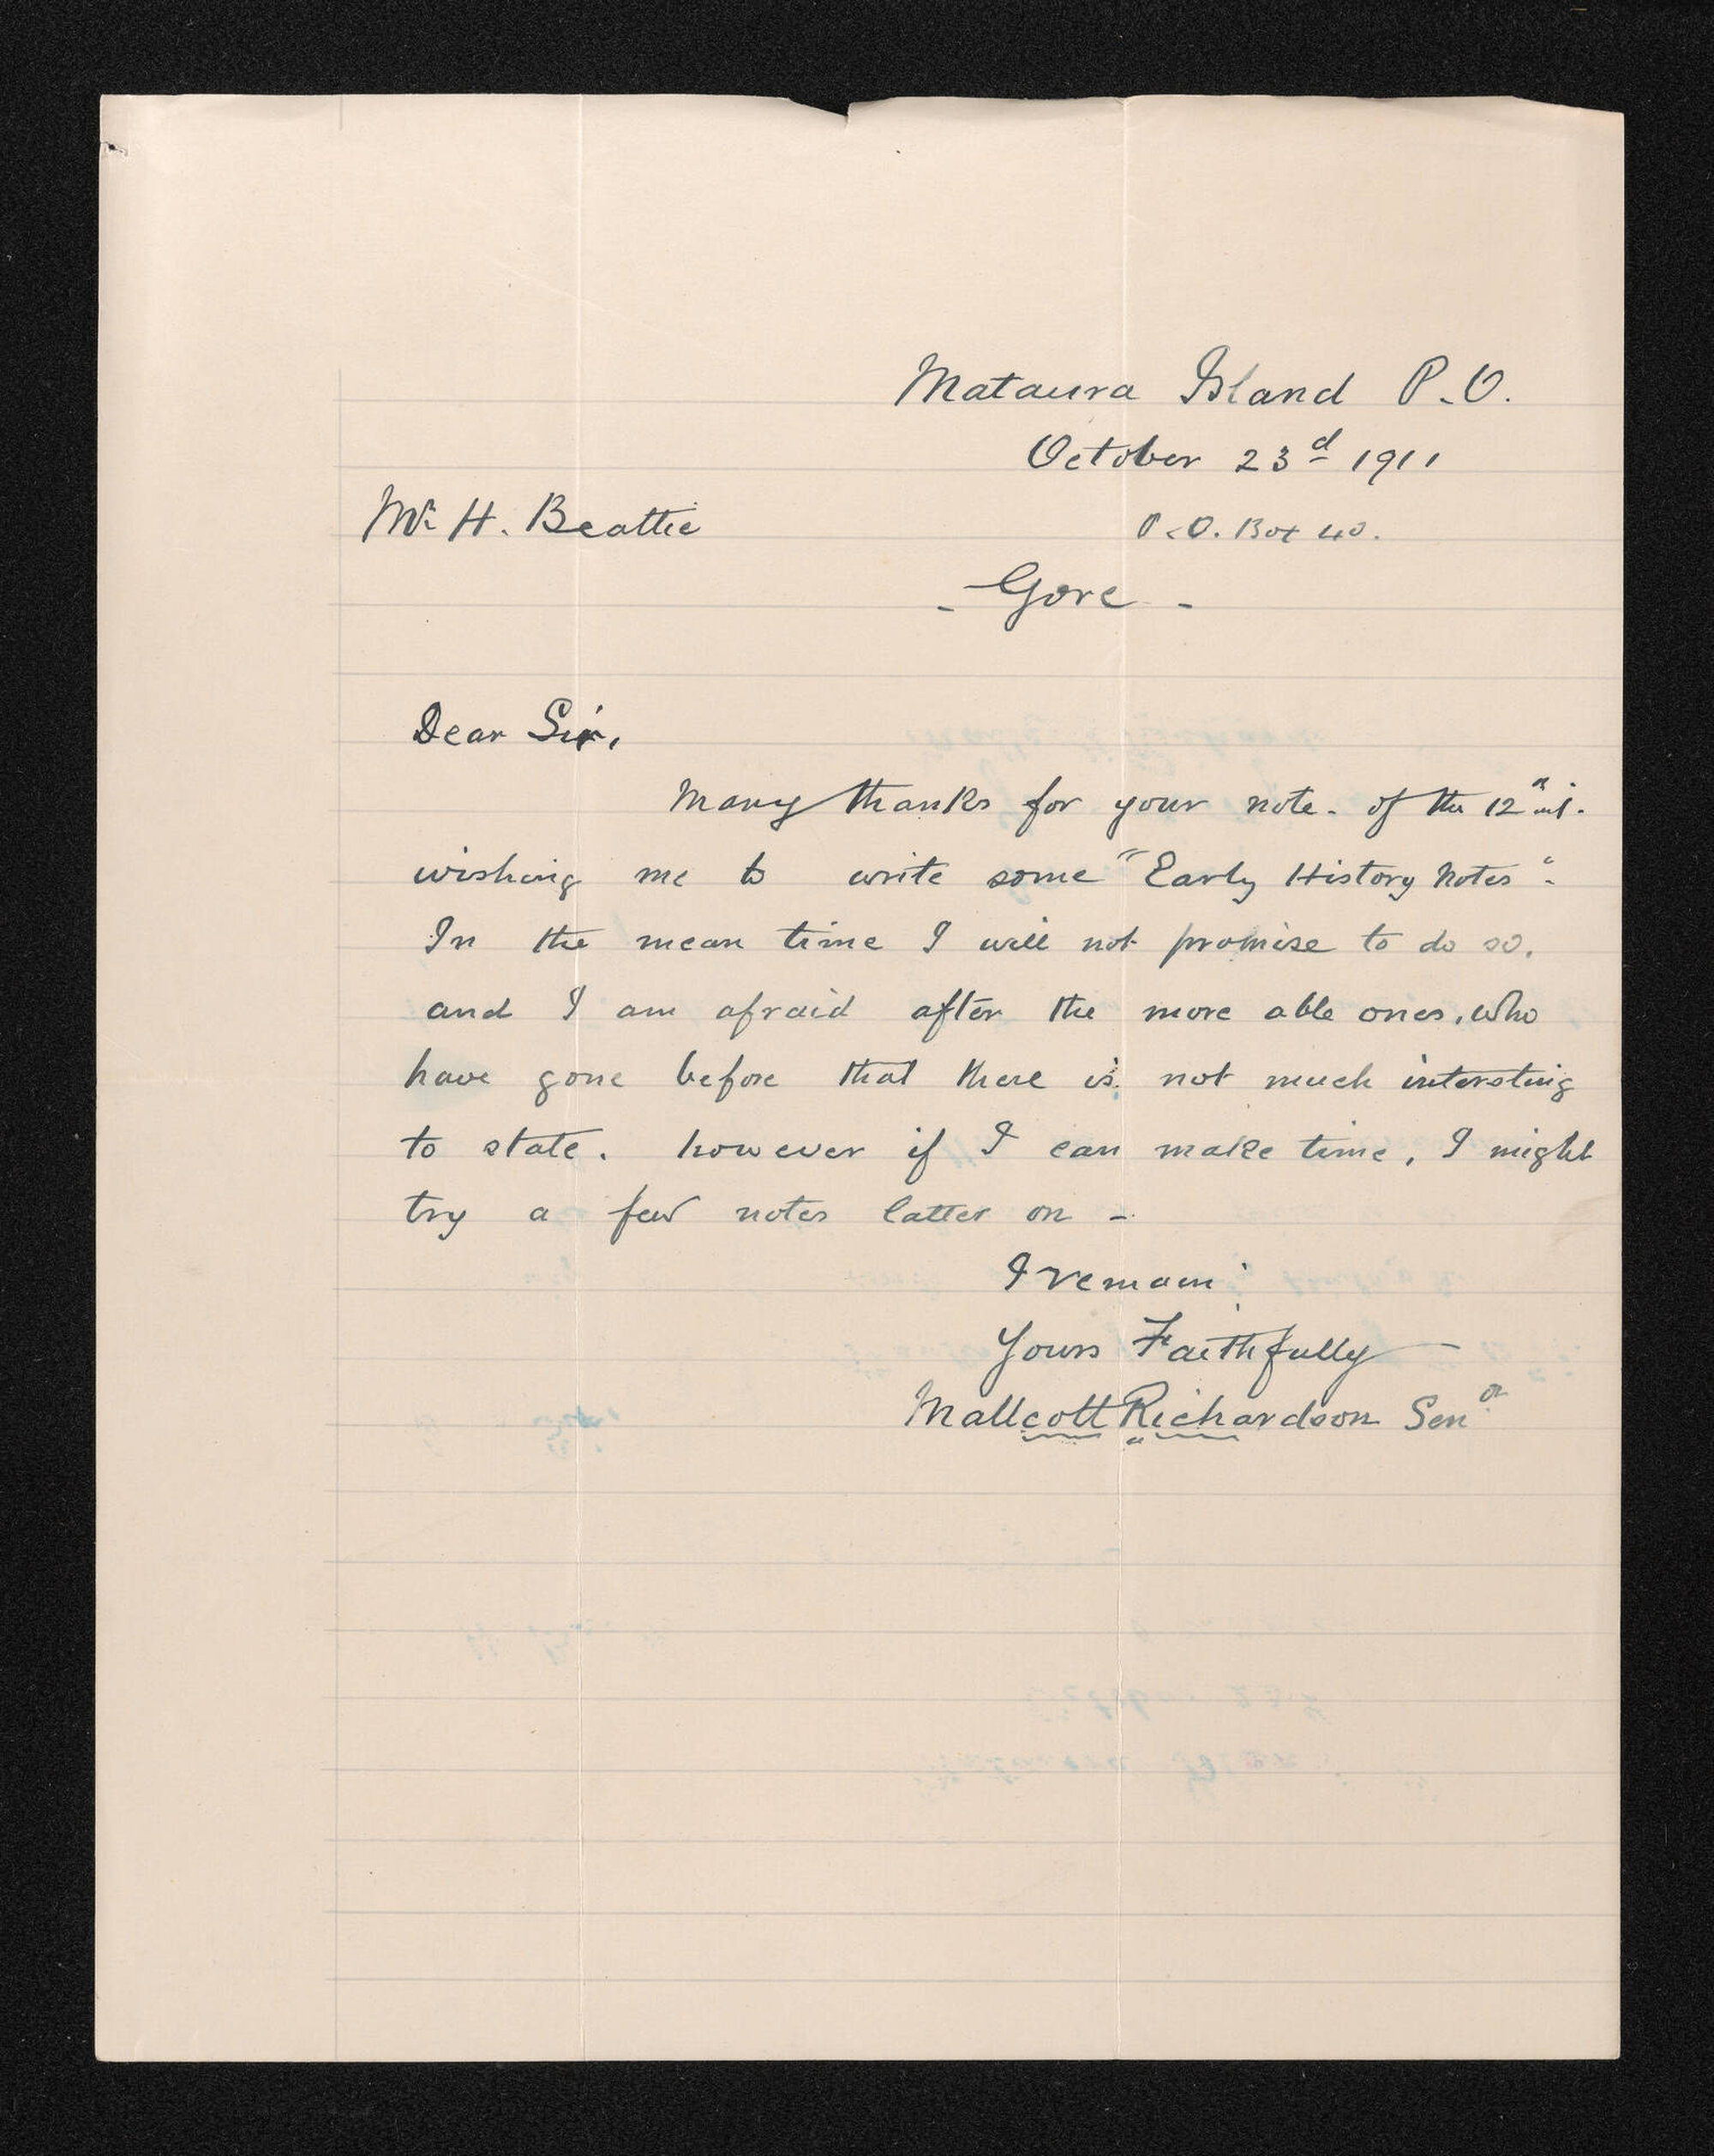 Mataura Island P.O.
October 23d 1911
Mr H. Beattie
P.O. Box 40.
- Gore -
Dear Sir,
Many thanks for your note. of the 12th inst.
wishing me to write some "Early History Notes".
In the mean time I will not promise to do so.
and I am afraid after the more able ones, who
have gone before that there is not much intersting
to state. however if I can make time, I might
try a few notes latter on -
I remain
Yours Faithfully
Mallcott Richardson Senor